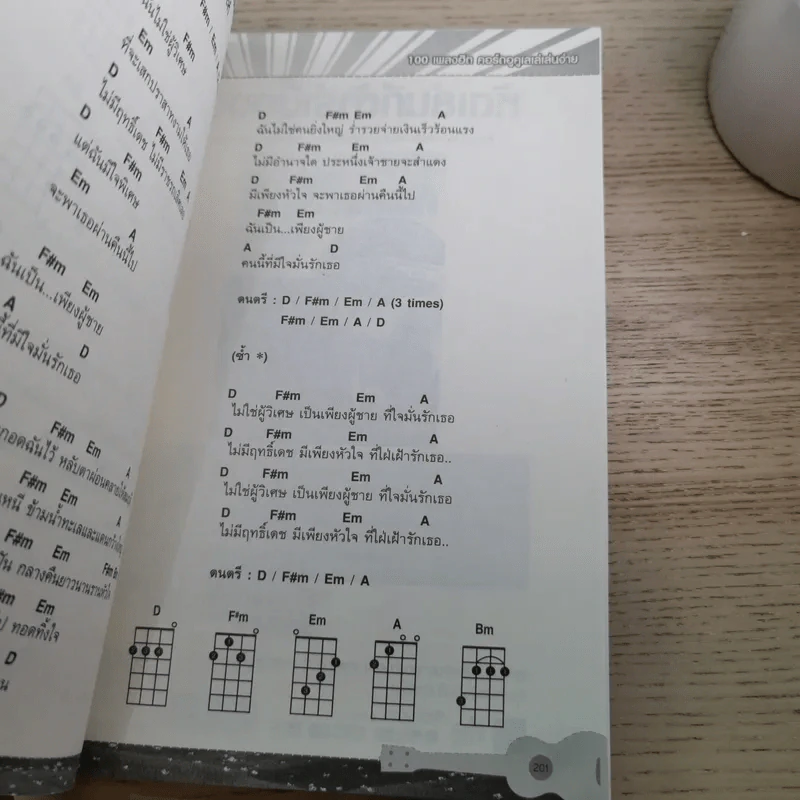 ฉันไม่ใช่ผู้วิเศษ
Em
ที่จะเสกปราสาทงามให้เธอ
D F#m Em A
ไม่มีฤทธิ์เดช
D F#m
แต่ฉันมีใจพิเศษ
Em A
จะพาเธอผ่านคืนนี้ไป
F#m Em
ฉันเป็น...เพียงผู้ชาย
A D
นี้ที่มีใจมั่นรักเธอ
D F#m Em A
กอดฉันไว้ หลับตาผ่อนคลาย
F#m Em A
ข้ามน้ำทะเล
F#m Em F#m Bm
กลางคืนยาวนาน
Em
ทอดทิ้งใจ
D
100 เพลงฮิต คอร์ดอูคูเลเล่เล่นง่าย
D F#m Em A
ฉันไม่ใช่คนยิ่งใหญ่ ร่ำรวยจ่ายเงินเร็วร้อนแรง
D F#m Em A
ไม่มีอำนาจใด ประหนึ่งเจ้าชายจะสำแดง
D F#m Em A
มีเพียงหัวใจ จะพาเธอผ่านคืนนี้ไป
F#m Em
ฉันเป็น...เพียงผู้ชาย
A D
คนนี้ที่มีใจมั่นรักเธอ
ดนตรี : D / F#m / Em / A (3 times)
F#m / Em / A / D
(ซ้ำ *)
D F#m Em A
ไม่ใช่ผู้วิเศษ เป็นเพียงผู้ชาย ที่ใจมั่นรักเธอ
D F#m Em A
ไม่มีฤทธิ์เดช มีเพียงหัวใจ ที่ใฝ่เฝ้ารักเธอ..
D F#m Em A
ไม่ใช่ผู้วิเศษ เป็นเพียงผู้ชาย ที่ใจมั่นรักเธอ
D F#m Em A
ไม่มีฤทธิ์เดช มีเพียงหัวใจ ที่ใฝ่เฝ้ารักเธอ..
ดนตรี : D / F#m / Em / A
D F#m Em A Bm
201